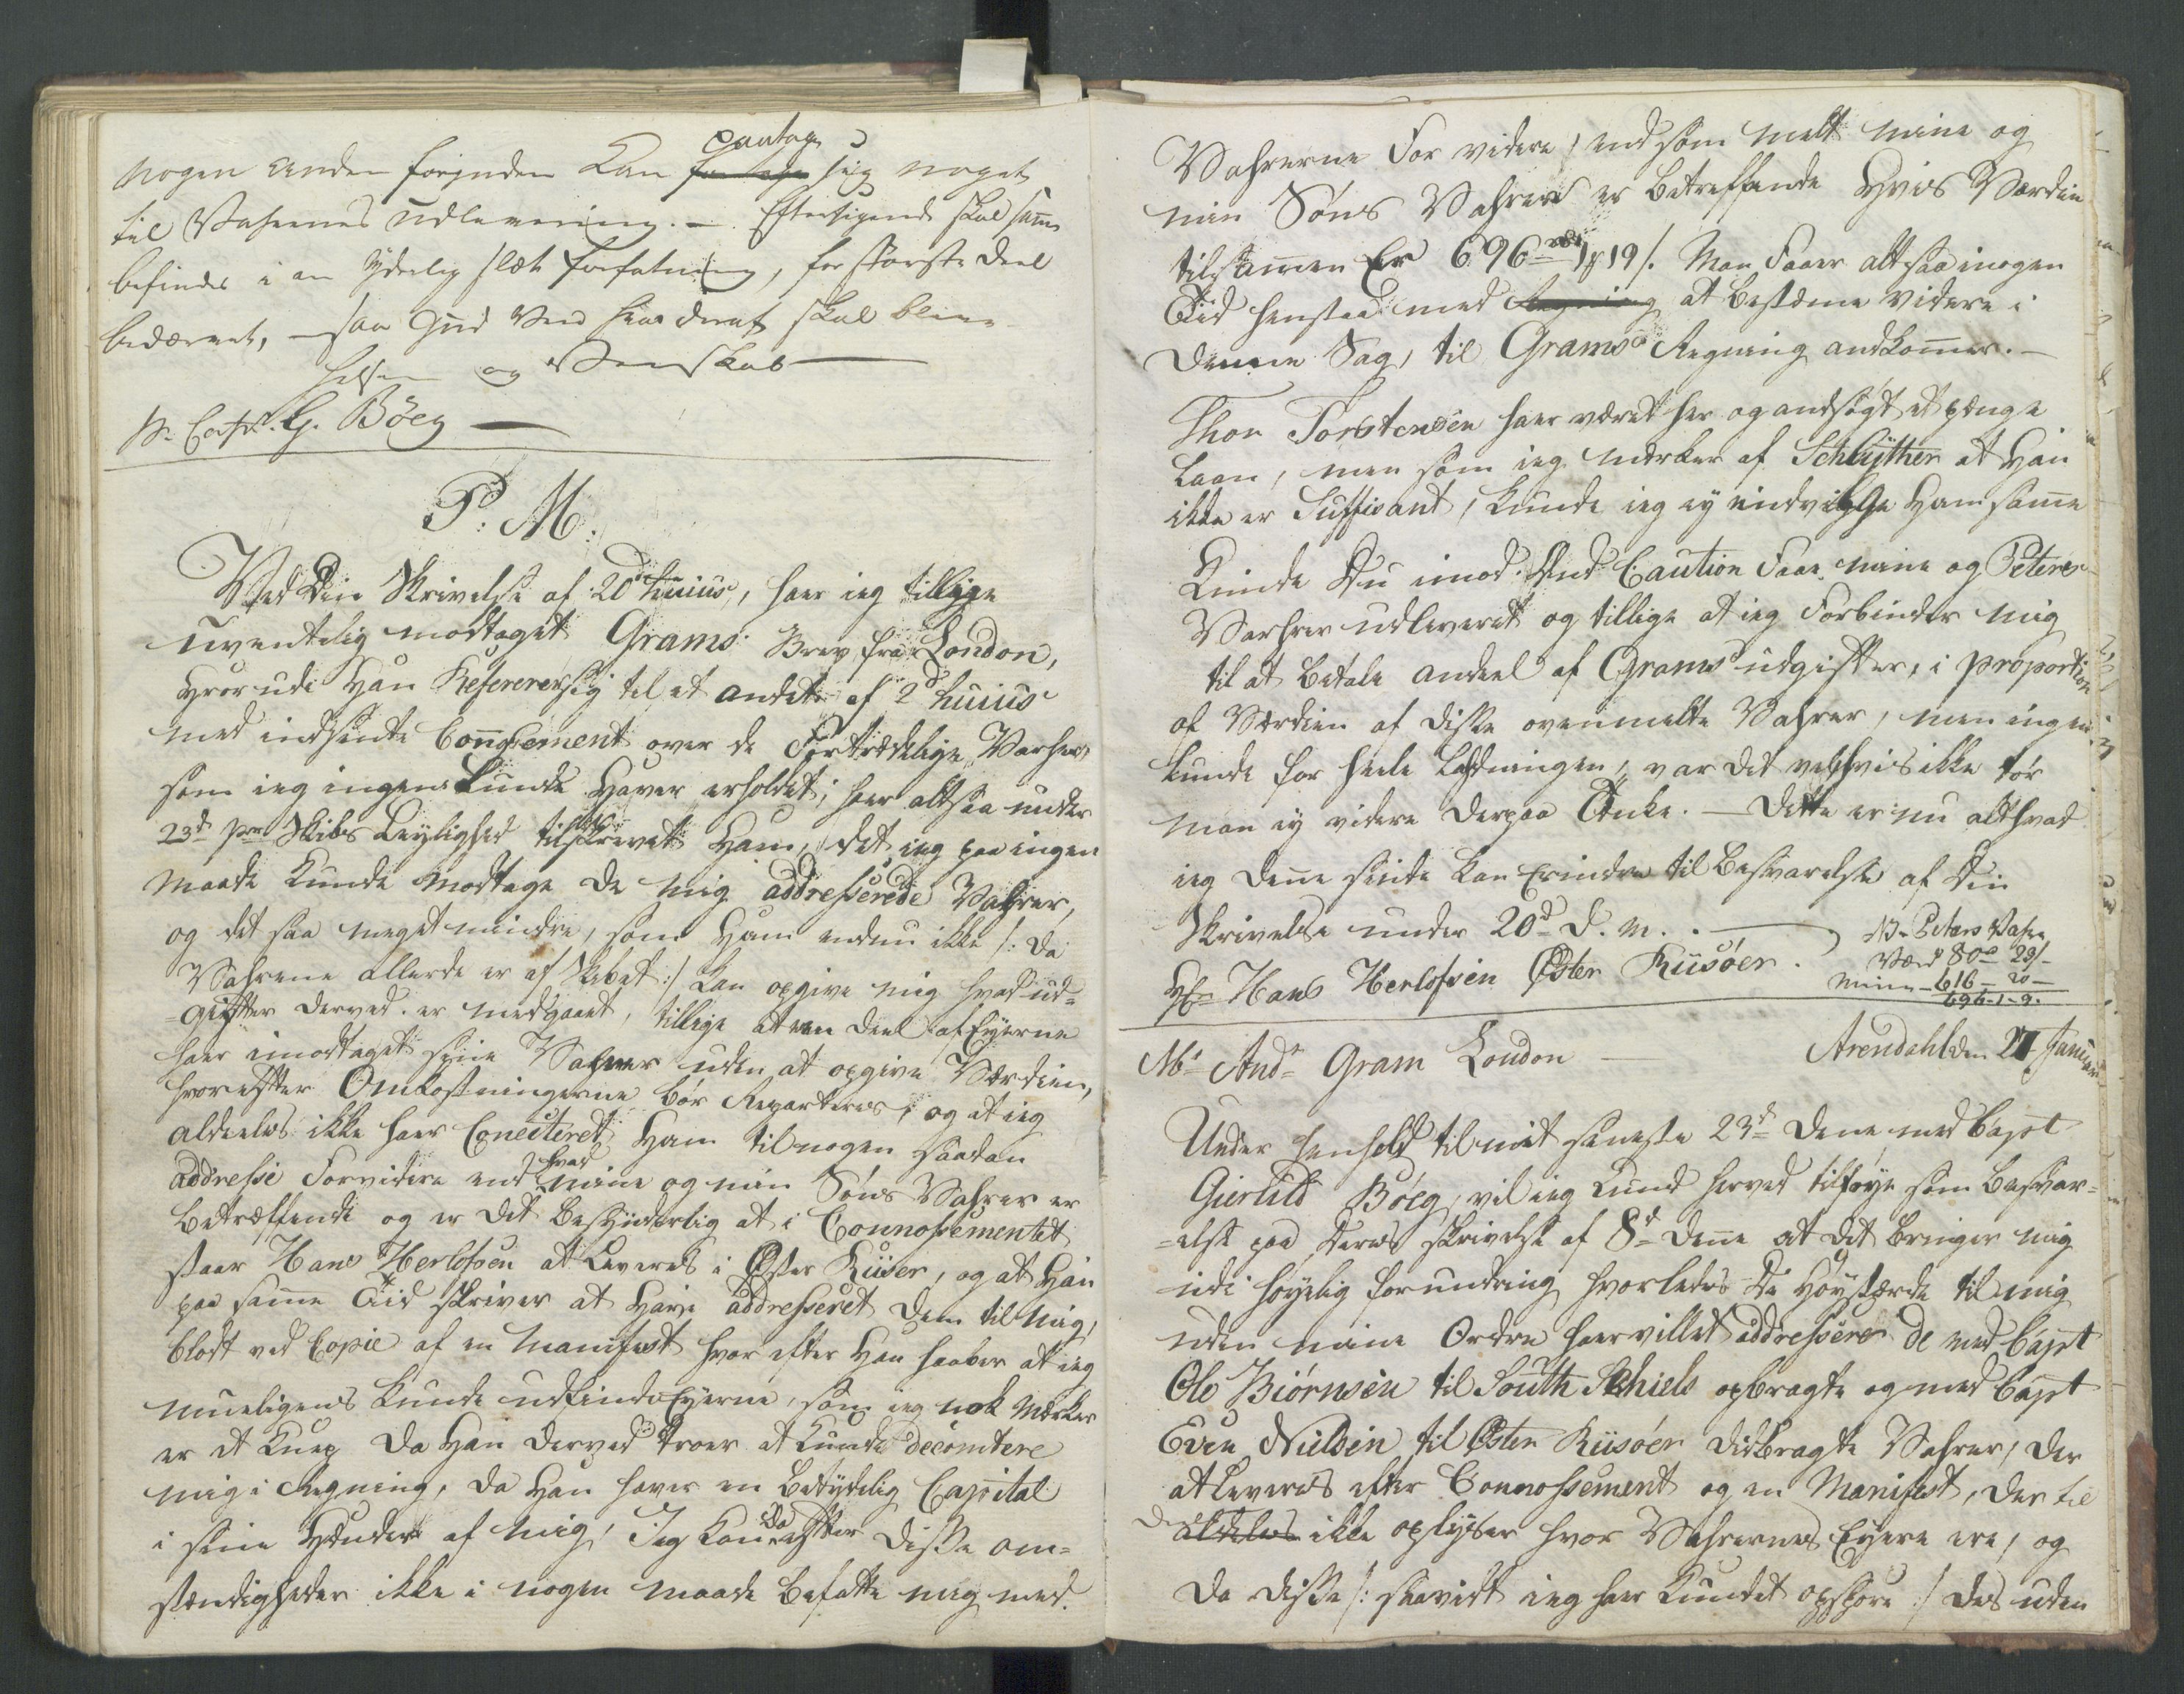 nogen anden forinden kan paatage sig noget
til Vahrenes Udlevering. — Eftersigende skal samme
befindes i en ÿderlig slæt forfatning, for største Deel
bedærvet, — saa Gud veed hvor deraf skal blive
Hilsen og Venskab —
Hr. Capt. G. Böeg —
P. M.
Ved Din Skrivelse af 20d huius, haer ieg tillige
uventelig modtaget Grams Brev fra London,
hvorudi Han Refererer sig til et andet af 2d huius
med indsendte Connossement over de Fortrædelige Varher
som ieg ingenlunde haver erholdet; haer altsaa under
23d pr Skibs Leylighed tilskrevet Ham, at ieg paa ingen
Maade kunde modtage de mig addresserede Vahrer,
og det saa meget mindre, som Ham endnu ikke /: da
Vahrene allerede er af Skibet :/ kan opgive mig hvad ud=
=gifter derved er medgaaet, tillige at een Deel af Eÿerne
haer imodtaget sine Vahrer uden at opgive Værdien,
hvorefter Omkostningerne bör Reparteres, og at ieg
aldeeles ikke haer Committeret Ham til nogen saadan
addresse Forvidere end hvad mine og min Söns Vahrer er
betreffende og er det besÿnderlig at i Connossementet
staar Hans Herlofsen at Leveres i Öster Riisöer, og at Han
paa samme Tiid skriver at Have addresseret dem til mig,
blodt ved Copie af en Manifest hvorefter Han haaber at ieg
mueligens kunde udfinde Eÿerne, som ieg nok mærker
er et Knep da Han derved troer at kunde decomtere
mig i Regning, da Han haver en betÿdelig Capital
i sine Hænder af mig, Jeg kan da efter disse om=
stændigheder ikke i nogen maade befatte mig med
Vahrerne For videre, end som melt mine og
min Söns Vahrer er betreffende Hvis Værdie
tilsammen Er 696 rd 1 # 19 /. Man Faaer altsaa i nogen
Tid henstaa med at bestemme videre i
denne Sag, til Grams Regning andkommer. —
Thor Torstensen haer været her og andsögt et penge
Laan, men som ieg mærker af Schlÿther at Han
ikke er Suffisant, kunde ieg eÿ indvilge Ham samme
Kunde Du imod. And Caution Faae mine og Peters
Varhrer udleveret og tillige at ieg Forbinder mig
til at betale andeel af Grams udgifter, i Proportion
af Værdien af disse ovenmelte Vahrer, men ingen
lunde for heele Ladningen, var det vel hvis ikke tör
man eÿ videre derpaa Tænke. — Dette er nu alt hvad
ieg denne sinde kan Erindre til Besvarelse af Din
Skrivelse under 20d d. M. —
NB. Peters Vahre
Værd 80 — 29/—
Mine — 616 — 20 —
696-1-9.
Hr Hans Herlofsen Öster Riisöer.
Mr Andr Gram London —
Arendahl den 27 Januar
Under henhold til mit seneste 23d denne med Capt
Gierluld Böeg, vil ieg kund herved tilföÿe som Besvar=
=else paa Deres skrivelse af 8d denne at det bringer mig
udi höÿelig forundring hvorledes De Höÿstærede til mig
uden mine Ordre haer villet addressere de med Capt
Ole Biörnsen til South Schiels opbragte og med Capt
Even Nielsen til Öster Riisöer didbragte Vahrer, der
at Leveres efter Connossement og en Manifest, der til
aldeles ikke oplÿser hvor Vahrernes Eÿere ere, og
da disse /: saavidt ieg haer kundet opspore :/ des uden